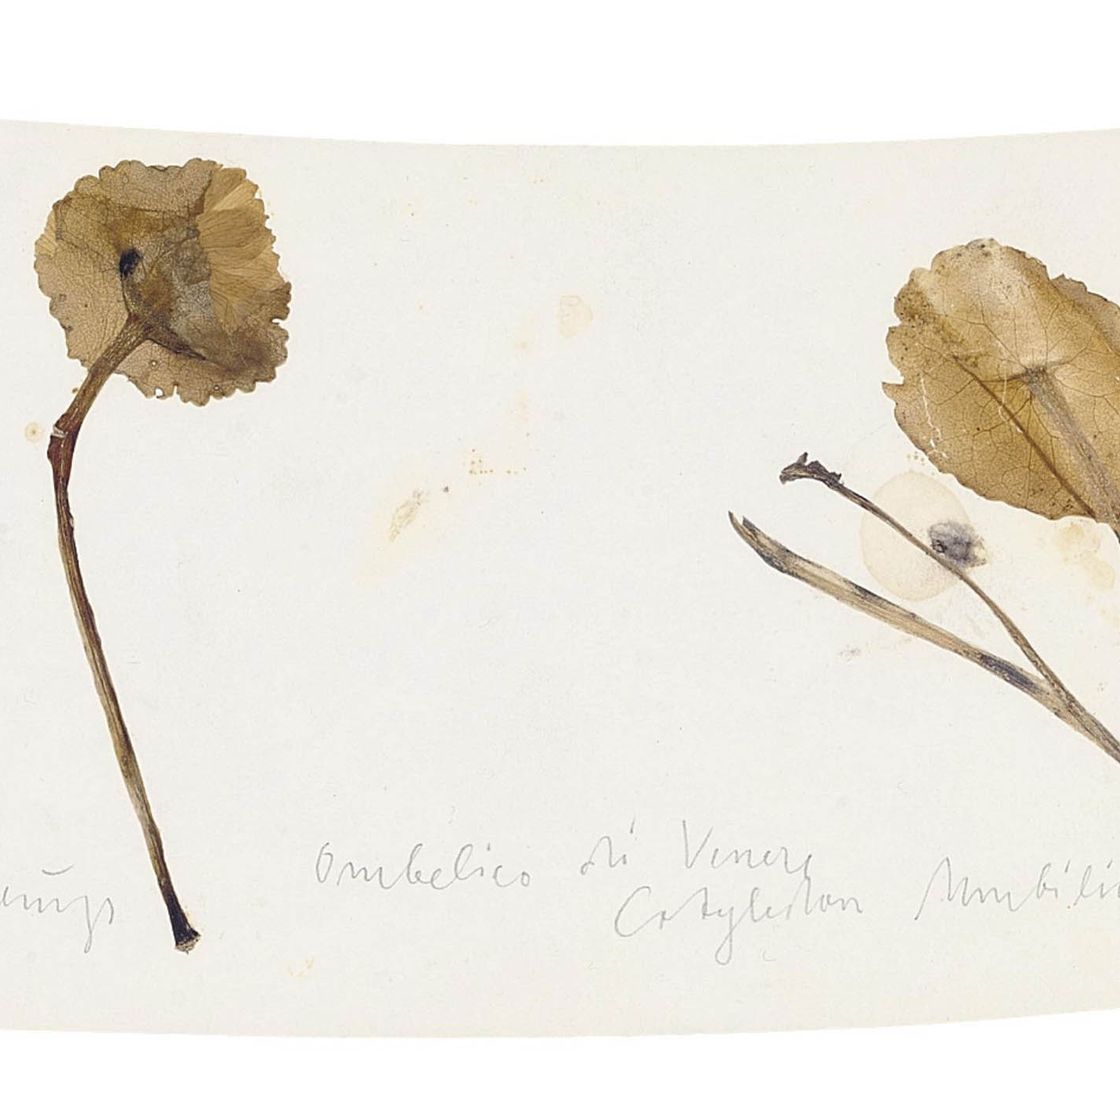 Ombelico di Venere
Cotyledon Umbili